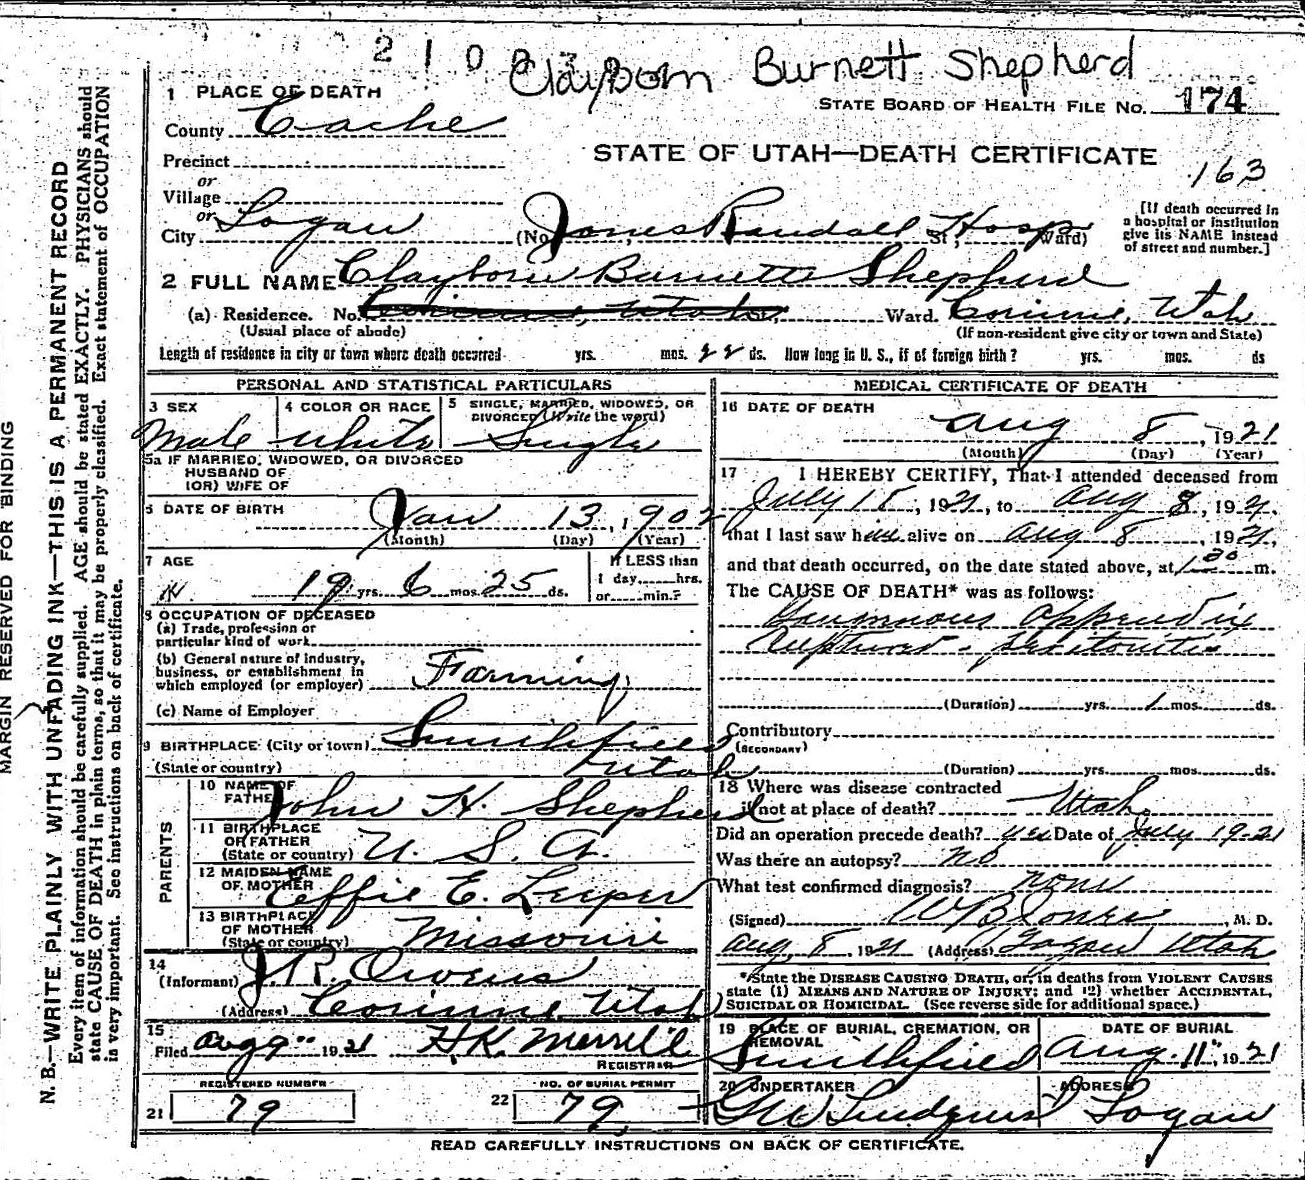 2 1 0
Clayborn Burnett Shepherd
STATE BOARD OF HEALTH FILE No. 174
1 PLACE OF DEATH
County Cache
STATE OF UTAH—DEATH CERTIFICATE
163
Precinct
or
Village
or
City Logan (No. Jones Randall Hosp St.; Ward)
[If death occurred in
a hospital or institution
give its NAME instead
of street and number.]
2 FULL NAME Clayborn Burnette Shepherd
(a) Residence. No. Corinne, Utah, Ward. Corinne, Utah
(Usual place of abode) (If non-resident give city or town and State)
Length of residence in city or town where death occurred yrs. mos. 22 ds. How long in U. S., if of foreign birth? yrs. mos. ds
PERSONAL AND STATISTICAL PARTICULARS
3 SEX Male
4 COLOR OR RACE White
5 SINGLE, MARRIED, WIDOWED, OR
DIVORCED (Write the word)
Single
5a IF MARRIED, WIDOWED, OR DIVORCED
HUSBAND OF
(OR) WIFE OF
6 DATE OF BIRTH Jan 13, 1902
(Month) (Day) (Year)
7 AGE
19 yrs 6 mos. 25 ds.
If LESS than
1 day, hrs.
or min.?
8 OCCUPATION OF DECEASED
(a) Trade, profession or
particular kind of work
(b) General nature of industry,
business, or establishment in
which employed (or employer) Farming
(c) Name of Employer
9 BIRTHPLACE (City or town) Smithfield
(State or country) Utah
PARENTS
10 NAME OF
FATHER John H. Shepherd
11 BIRTHPLACE
OF FATHER
(State or country) U. S. A.
12 MAIDEN NAME
OF MOTHER Effie E. Leeper
13 BIRTHPLACE
OF MOTHER
(State or country) Missouri
14
(Informant) J. R. Owens
(Address) Corinne, Utah
15
Filed Aug 9" 1921 H.K. Merrill
REGISTRAR
REGISTERED NUMBER
21 79
NO. OF BURIAL PERMIT
22 79
MEDICAL CERTIFICATE OF DEATH
16 DATE OF DEATH
Aug 8, 1921
(Month) (Day) (Year)
17 I HEREBY CERTIFY, That I attended deceased from
July 18, 1921, to Aug 8, 1921,
that I last saw him alive on Aug 8, 1921,
and that death occurred, on the date stated above, at m.
The CAUSE OF DEATH* was as follows:
Appendix
Ruptured - Peritonitis
(Duration) yrs. 1 mos. ds.
Contributory
(SECONDARY)
(Duration) yrs. mos. ds.
18 Where was disease contracted
if not at place of death? Utah
Did an operation precede death? yes Date of July 19-21
Was there an autopsy? no
What test confirmed diagnosis? none
(Signed) W B Jones, M. D.
Aug, 8, 1921 (Address) Logan Utah
*State the DISEASE CAUSING DEATH, or, in deaths from VIOLENT CAUSES
state (1) MEANS AND NATURE OF INJURY; and (2) whether ACCIDENTAL,
SUICIDAL OR HOMICIDAL. (See reverse side for additional space.)
19 PLACE OF BURIAL, CREMATION, OR
REMOVAL
Smithfield
DATE OF BURIAL
Aug. 11", 1921
20 UNDERTAKER
G W Lindquist
ADDRESS
Logan
READ CAREFULLY INSTRUCTIONS ON BACK OF CERTIFICATE.
MARGIN RESERVED FOR BINDING
N. B.—WRITE PLAINLY WITH UNFADING INK—THIS IS A PERMANENT RECORD
Every item of information should be carefully supplied. AGE should be stated EXACTLY. PHYSICIANS should
state CAUSE OF DEATH in plain terms, so that it may be properly classified. Exact statement of OCCUPATION
is very important. See instructions on back of certificate.